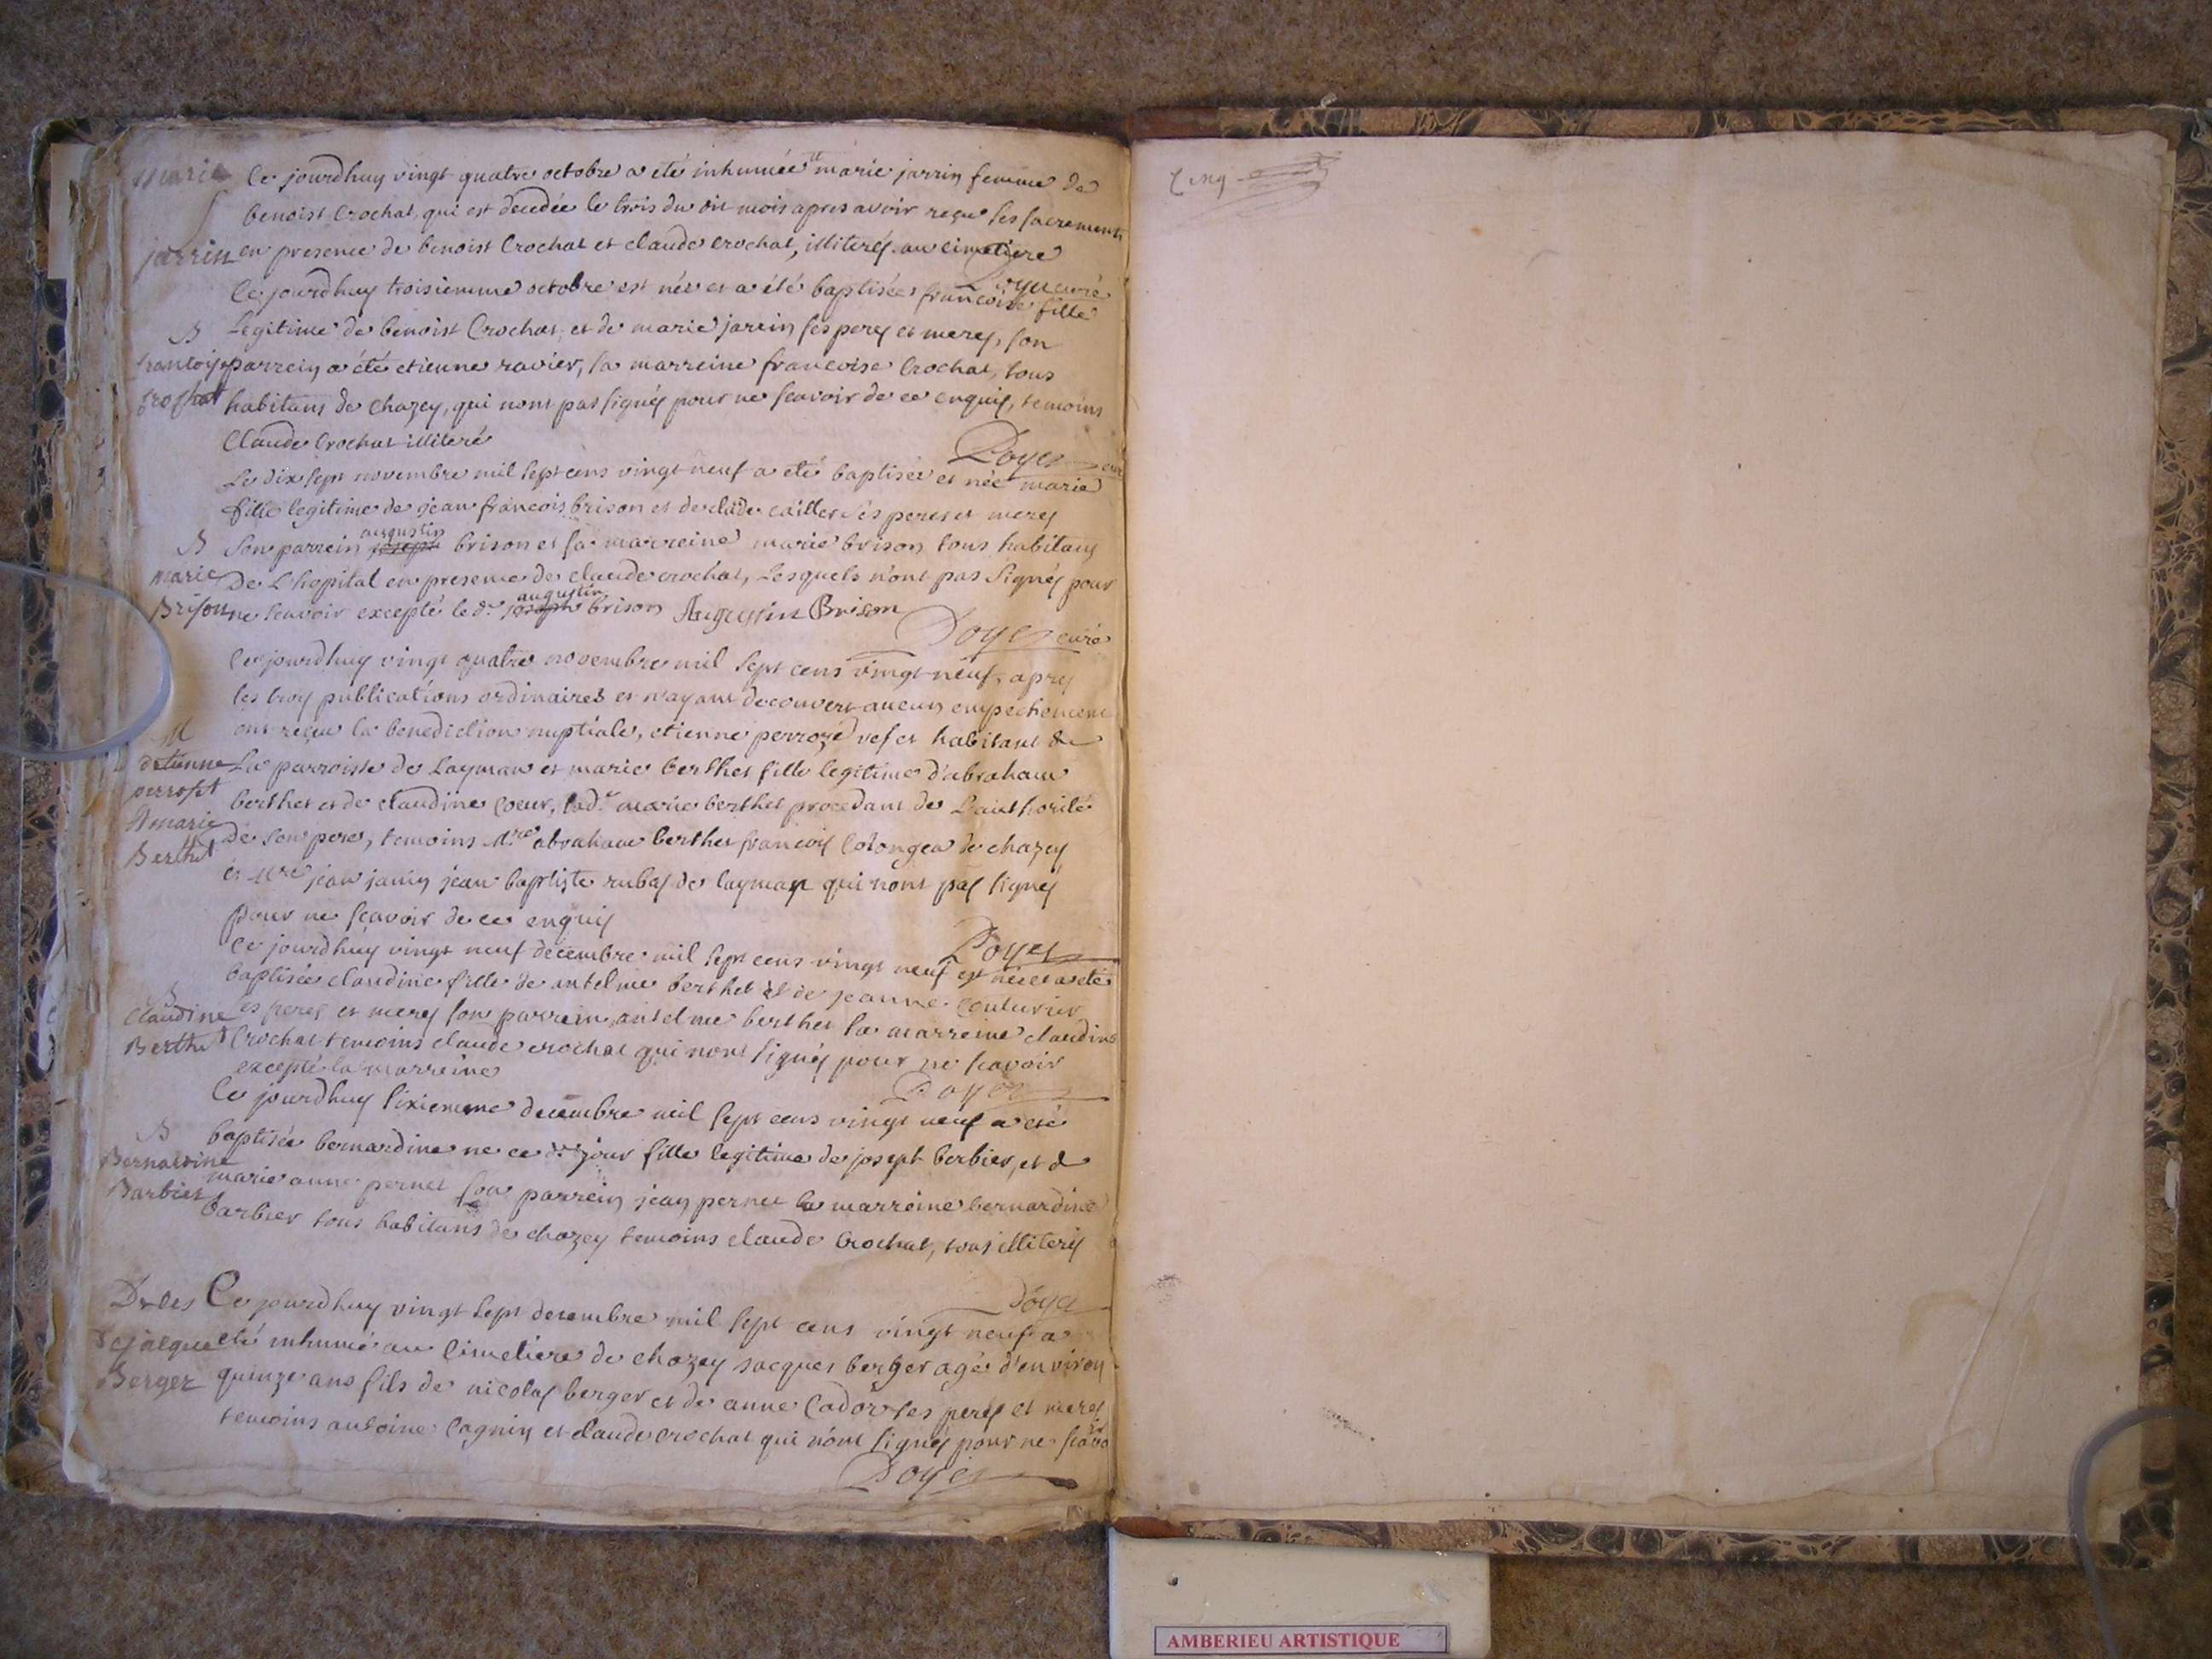 Marie
jarrin
Ce jourdhuy vingt quatre octobre a eté inhumée marie jarrin femme de
benoist Crochat, qui est decedée le trois du dit mois apres avoir reçu ses sacrements
en presence de benoist Crochat et claude crochat, illiterés au cimetiere
curé
B
francoise
Crochat
Ce jourdhuy troisiemme octobre est née et a été baptisée francoise fille
Legitime de benoist Crochat, et de marie jarrin ses perey et merey, son
parrein a été etienne ravier, sa marreine francoise Crochat, tous
habitans de chazey, qui nont pas signés pour ne scavoir de ce enquis, temoins
Claude Crochat illiteré
Doyen curé
B
marie
Brison
Le dix sept novembre mil sept cens vingt neuf a eté baptisée et née marie
fille legitime de jean francois brison et de clade caillet ses peres et merey
Son parrein augustin joseph brison et sa marreine marie brison tous habitans
De L'hopital en presence de claude crochat, Lesquels n'ont pas Signés pour
ne scavoir excepté le d. augustin joseph brison Augustin Brison
Doyen curé
M
d'etienne
perroset
& marie
Berthet
Ce jourdhuy vingt quatre novembre mil sept cens vingt neuf, aprey
les troy publications ordinaires et n'ayant decouvert aucun empechement
ont reçu la benediction nuptiale, etienne perrozé vef et habitant de
La parroisse de Layman et marie berthet fille legitime d'abraham
berthet et de claudine coeur, lad. marie berthet procedant de L'authorité
de son pere, temoins Mre abraham berthet francois Colongea de chazey
et Mre jean janin jean baptiste rubas de layman qui nont pas signés
pour ne sçavoir de ce enquis
Doyen
B
Claudine
Berthet
Ce jourdhuy vingt neuf decembre mil sept cens vingt neuf est née et a eté
baptisée claudine fille de antelme berthet et de jeanne couturier
es perey et merey son parrein antelme berthet sa marreine claudine
Crochat temoins claude crochat qui nont signés pour ne scavoir
excepté la marreine
Doyen
B
Bernardine
Barbier
Ce jourdhuy sixiemme decembre mil sept cens vingt neuf a eté
baptisée bernardine ne ce d. jour fille legitime de josept berbier, et d
marie anne pernet son parrein jean pernet la marreine bernardine
barbier tous habitans de chazey temoins claude Crochat, tous illiterés
Doyen
Deces
De jacque
Berger
Ce jourdhuy vingt sept decembre mil sept cens vingt neuf a
eté inhumé au Cimetiere de chazey jacques berger agé d'environ
quinze ans fils de nicolas berger et de anne Cador ses perey et merey
temoins antoine Cagnin et claude crochat qui n'ont signés pour ne scavoir
Doyen
Cinq
AMBERIEU ARTISTIQUE